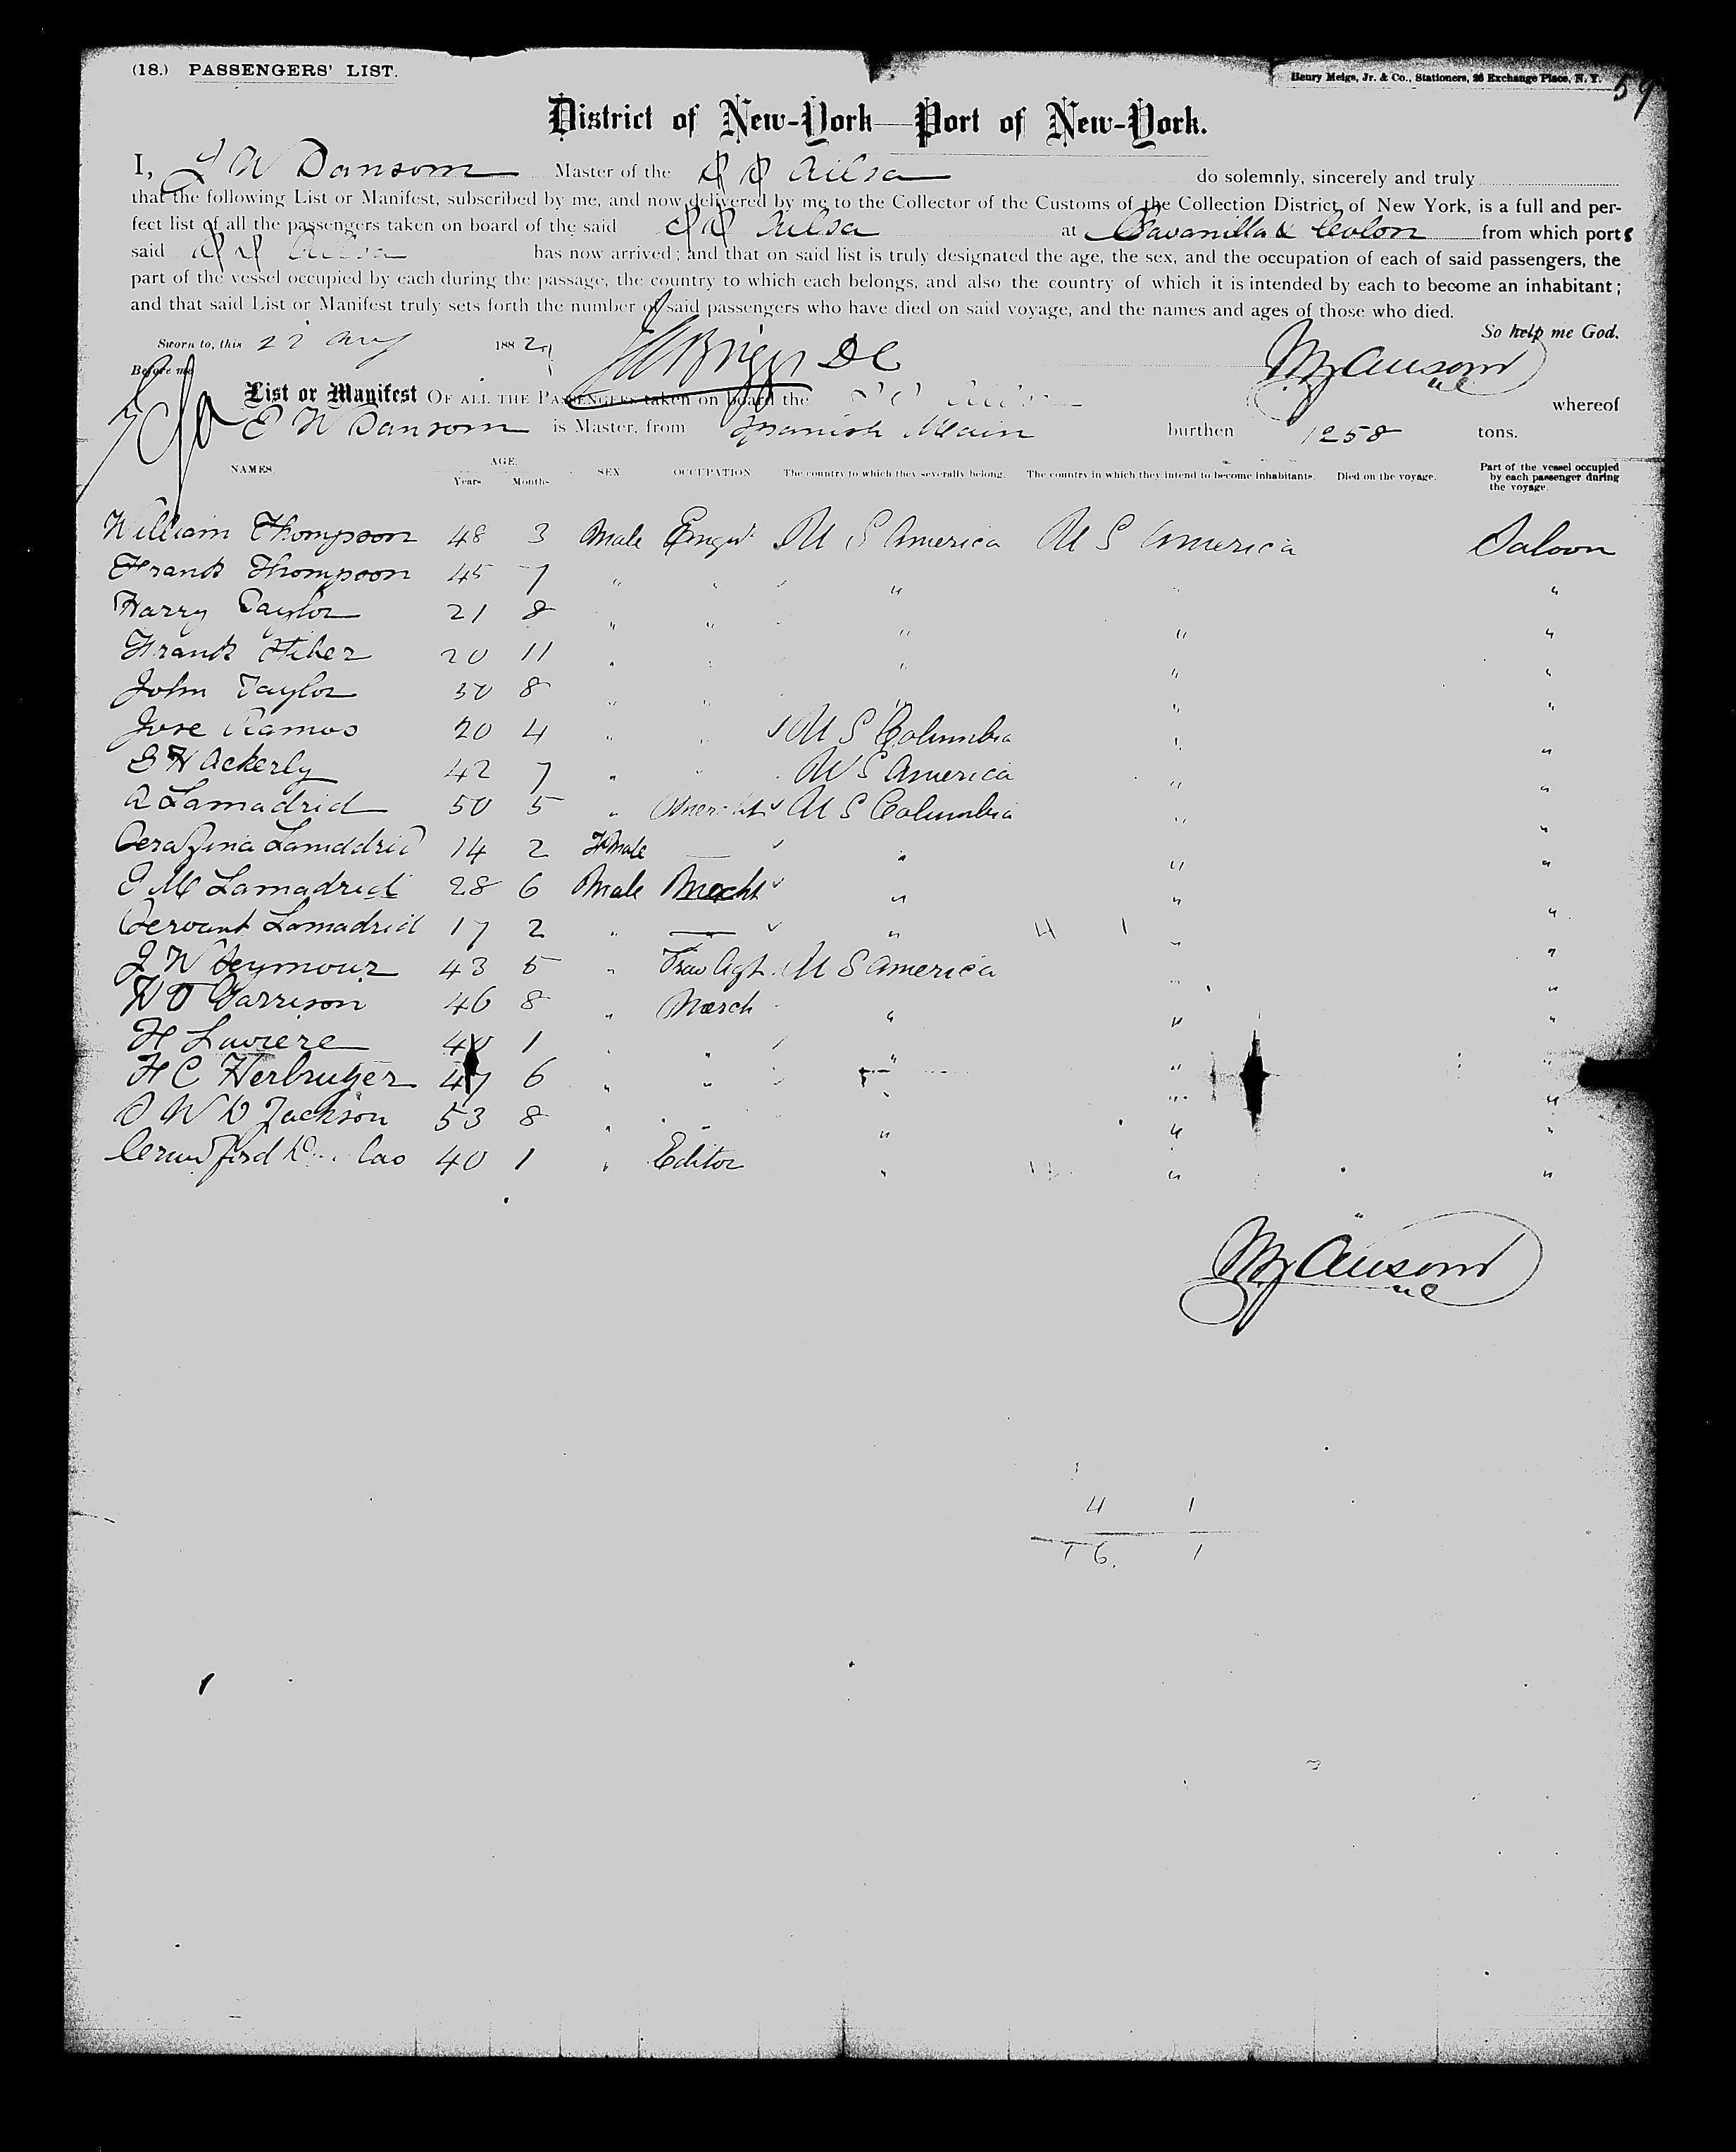 (18.) PASSENGERS' LIST.
Henry Meigs, Jr. & Co., Stationers, 26 Exchange Place, N. Y.
59
District of New-York—Port of New-York.
I, Dansom Master of the S S Ailsa do solemnly, sincerely and truly
that the following List or Manifest, subscribed by me, and now delivered by me to the Collector of the Customs of the Collection District of New York, is a full and per-
fect list of all the passengers taken on board of the said S S Ailsa at Savanilla & Colon from which ports
said S S Ailsa has now arrived; and that on said list is truly designated the age, the sex, and the occupation of each of said passengers, the
part of the vessel occupied by each during the passage, the country to which each belongs, and also the country of which it is intended by each to become an inhabitant;
and that said List or Manifest truly sets forth the number of said passengers who have died on said voyage, and the names and ages of those who died.
So help me God.
Sworn to, this 22 188
Before me Briggs DC
List or Manifest OF ALL THE PASSENGERS taken on board the whereof
E W Dansom is Master, from Spanish Main burthen 1258 tons.
NAMES. AGE. Years Months SEX OCCUPATION The country to which they severally belong. The country in which they intend to become inhabitants. Died on the voyage. Part of the vessel occupied by each passenger during the voyage.
William Thompson 48 3 Male U S America U S America Saloon
Frank Thompson 45 7 " " " " "
Harry Taylor 21 8 " " " " "
Frank 20 11 " " " " "
John Taylor 30 8 " " " " "
Jose Ramos 20 4 " " U S Columbia " "
Ackerly 42 7 " " U S America " "
A Lamadrid 50 5 " U S Columbia " "
Lamadrid 14 2 Female — " " "
M Lamadrid 28 6 Male Mercht " " "
Servant Lamadrid 17 2 " — " 4 1 " "
J W Seymour 43 5 " Trav Agt U S America " "
Garrison 46 8 " Merch " " "
H 40 1 " " " " "
H C Herbruger 47 6 " " " " "
Jackson 53 8 " " " " "
40 1 " Editor " " "
4 1
16. 1